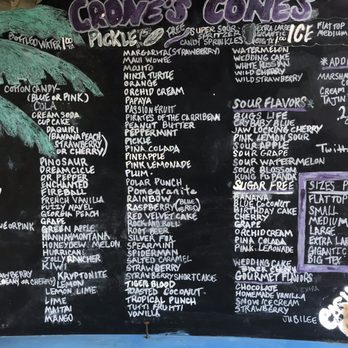 CRONE'S CONES
BOTTLED WATER 1.00
PICKLE
FREE SUPER SOUR
CANDY SPRINKLES
EXTRA LARGE
GIGANTIC
ICE
FLAT TOP
MEDIUM
COTTON CANDY
(BLUE OR PINK)
COLA
CREAM SODA
CUPCAKE
DAQUIRI
(BANANA, PEACH,
STRAWBERRY
OR CHERRY)
DINOSAUR
DREAMCICLE
DR PEPPER
ENCHANTED
FIREBALL
FRENCH VANILLA
FUZZY NAVEL
GEORGIA PEACH
GRAPE
GREEN APPLE
HANNAH MONTANA
HONEYDEW MELON
HURRICANE
JOLLY RANCHER
KIWI
KRYPTONITE
LEMON
LEMON LIME
LIME
MAITAI
MANGO
MARGARITA (STRAWBERRY)
MAUI WOWEE
MOJITO
NINJA TURTLE
ORANGE
ORCHID CREAM
PAPAYA
PASSIONFRUIT
PIRATES OF THE CARRIBEAN
PEANUT BUTTER
PEPPERMINT
PICKLE
PINA COLADA
PINEAPPLE
PINK LEMONADE
PLUM
POLAR PUNCH
POMEGRANITE
RAINBOW
RASPBERRY (BLUE OR RED)
RED VELVET CAKE
ROCKET
ROOT BEER
SILVER FOX
SPEARMINT
SPIDERMAN
SALTED CARAMEL
STRAWBERRY
STRAWBERRY SHORTCAKE
TIGER BLOOD
TOASTED COCONUT
TROPICAL PUNCH
TUTTI FRUTTI
VANILLA
WATERMELON
WEDDING CAKE
WHITE RUSSIAN
WILD CHERRY
WILD STRAWBERRY
SOUR FLAVORS
BUGS LIFE
CRYBABY BLUE
JAW LOCKING CHERRY
PINK LEMON SOUR
SOUR APPLE
SOUR GRAPE
SOUR WATERMELON
SOUR BLOSSOM
KUNG FU PANDA
SUGAR FREE
BANANA
BLUE COCONUT
BIRTHDAY CAKE
CHERRY
GRAPE
ORCHID CREAM
PINA COLADA
PINK LEMONADE
WEDDING CAKE
GOURMET FLAVORS
CHOCOLATE
HOMEMADE VANILLA
SNOW ICE CREAM
STRAWBERRY
JUBILEE
SIZES
FLAT TOP
SMALL
MEDIUM
LARGE
EXTRA LARGE
GIGANTIC
BIG